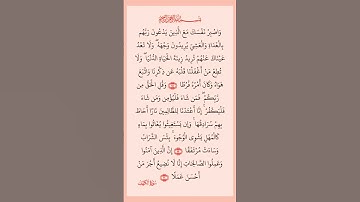 بِسْمِ اللَّهِ الرَّحْمَٰنِ الرَّحِيمِ
وَاصْبِرْ نَفْسَكَ مَعَ الَّذِينَ يَدْعُونَ رَبَّهُم
بِالْغَدَاةِ وَالْعَشِيِّ يُرِيدُونَ وَجْهَهُ ۖ وَلَا تَعْدُ
عَيْنَاكَ عَنْهُمْ تُرِيدُ زِينَةَ الْحَيَاةِ الدُّنْيَا ۖ وَلَا
تُطِعْ مَنْ أَغْفَلْنَا قَلْبَهُ عَن ذِكْرِنَا وَاتَّبَعَ
هَوَاهُ وَكَانَ أَمْرُهُ فُرُطًا وَقُلِ الْحَقُّ مِن
رَّبِّكُمْ ۖ فَمَن شَاءَ فَلْيُؤْمِن وَمَن شَاءَ
فَلْيَكْفُرْ ۚ إِنَّا أَعْتَدْنَا لِلظَّالِمِينَ نَارًا أَحَاطَ
بِهِمْ سُرَادِقُهَا ۚ وَإِن يَسْتَغِيثُوا يُغَاثُوا بِمَاءٍ
كَالْمُهْلِ يَشْوِي الْوُجُوهَ ۚ بِئْسَ الشَّرَابُ
وَسَاءَتْ مُرْتَفَقًا إِنَّ الَّذِينَ آمَنُوا
وَعَمِلُوا الصَّالِحَاتِ إِنَّا لَا نُضِيعُ أَجْرَ مَنْ
أَحْسَنَ عَمَلًا
سورة الكهف